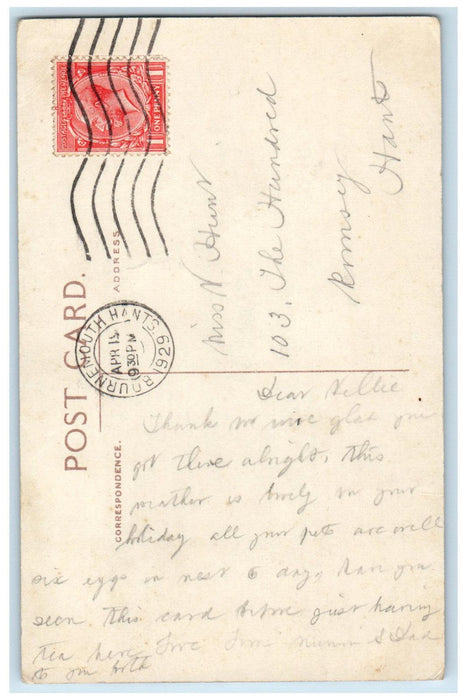 ONE PENNY
BOURNEMOUTH HANTS.
APR 13
9 30 PM
1929
POST CARD.
ADDRESS
CORRESPONDENCE.
Miss N. Hunt
103, The Hundred
Romsey
Hants
Dear Nellie
Thank glad you
got there alright, this
weather is lovely for your
holiday all your pets are well
six eggs in nest to day, have you
seen this card before just having
tea here love from Mum & Dad
to you both